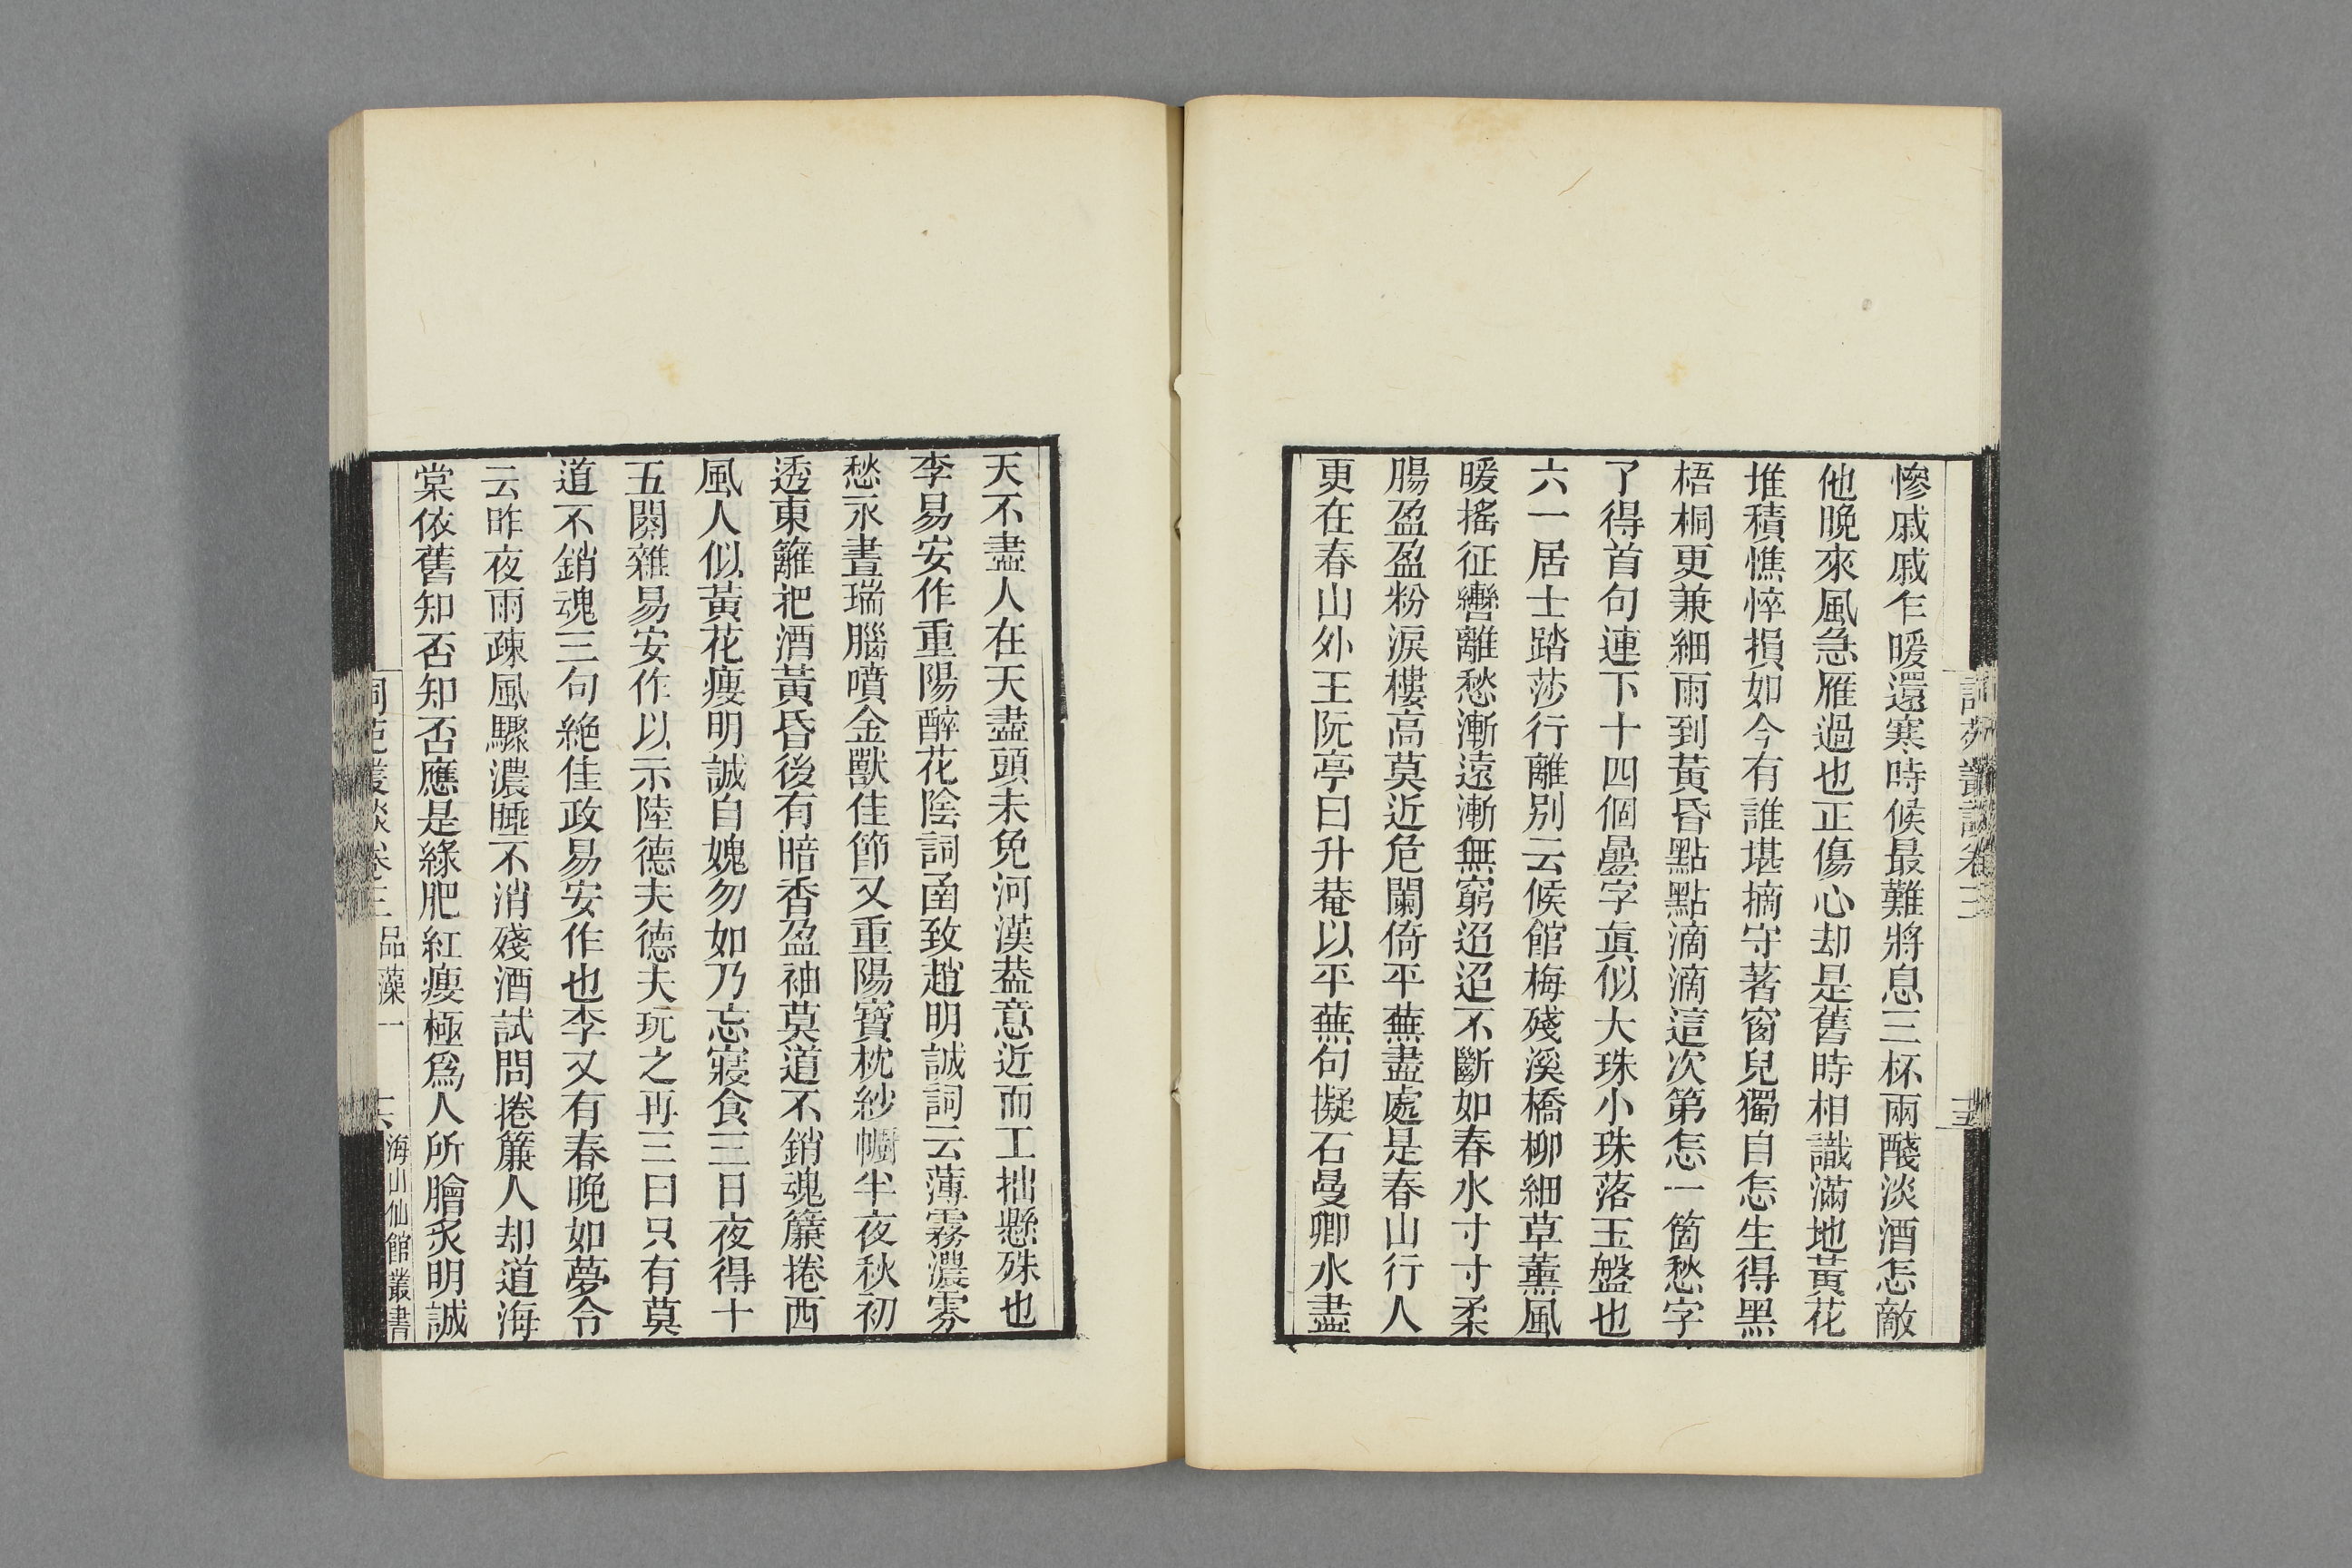 慘戚戚乍暖還寒時候最難將息三杯兩醆淡酒怎敵
他晚來風急雁過也正傷心却是舊時相識滿地黃花
堆積憔悴損如今有誰堪摘守著窗兒獨自怎生得黑
梧桐更兼細雨到黃昏點點滴滴這次第怎一箇愁字
了得首句連下十四個疊字眞似大珠小珠落玉盤也
六一居士踏莎行離別云候館梅殘溪橋柳細草薰風
暖搖征轡離愁漸遠漸無窮迢迢不斷如春水寸寸柔
腸盈盈粉淚樓高莫近危闌倚平蕪盡處是春山行人
更在春山外王阮亭曰升菴以平蕪句擬石曼卿水盡
天不盡人在天盡頭未免河漢葢意近而工拙懸殊也
李易安作重陽醉花陰詞函致趙明誠詞云薄霧濃雰
愁永晝瑞腦噴金獸佳節又重陽寶枕紗幮半夜秋初
透東籬把酒黃昏後有暗香盈袖莫道不銷魂簾捲西
風人似黃花瘦明誠自媿勿如乃忘寢食三日夜得十
五闋雜易安作以示陸德夫德夫玩之再三曰只有莫
道不銷魂三句絕佳政易安作也李又有春晚如夢令
云昨夜雨疎風驟濃睡不消殘酒試問捲簾人却道海
棠依舊知否知否應是綠肥紅瘦極爲人所膾炙明誠
詞苑叢談卷三 品藻一 海山仙館叢書